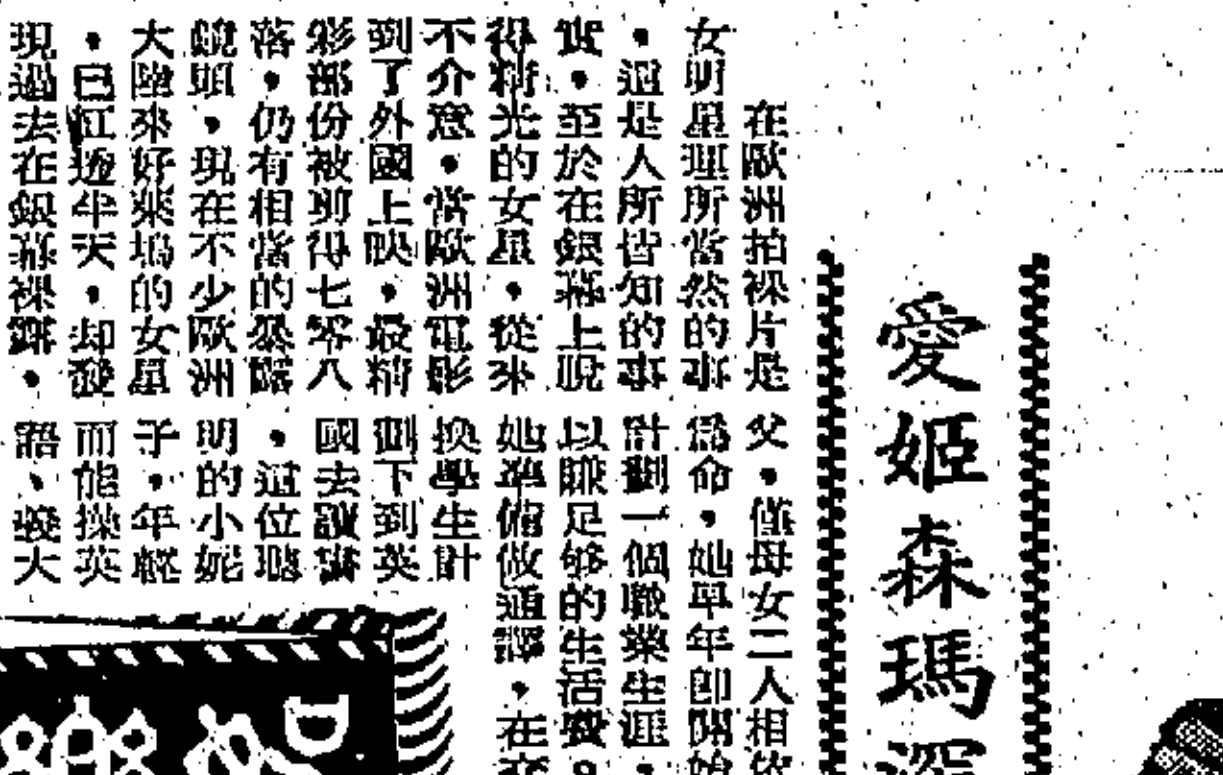 愛姬森瑪深
在歐洲拍裸片是
女明星理所當然的事
，這是人所皆知的事
實，至於在銀幕上脫
得精光的女星，從來
不介意，當歐洲電影
到了外國上映，最精
彩部份被剪得七零八
落，仍有相當的暴露
鏡頭，現在不少歐洲
大陸來好萊塢的女星
，已紅透半天，却發
現過去在銀幕裸露，
父，僅母女二人相依
為命，她早年即開始
計劃一個職業生涯，
以賺足够的生活費。
她準備做通譯，在交
換學生計
劃下到英
國去讀書
，這位聰
明的小妮
子，年輕
而能操英
語、義大